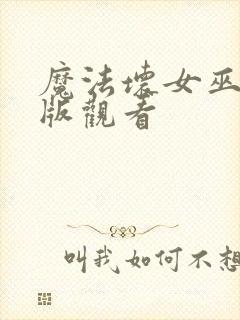 魔法壞女巫
版觀看
叫我如何不想